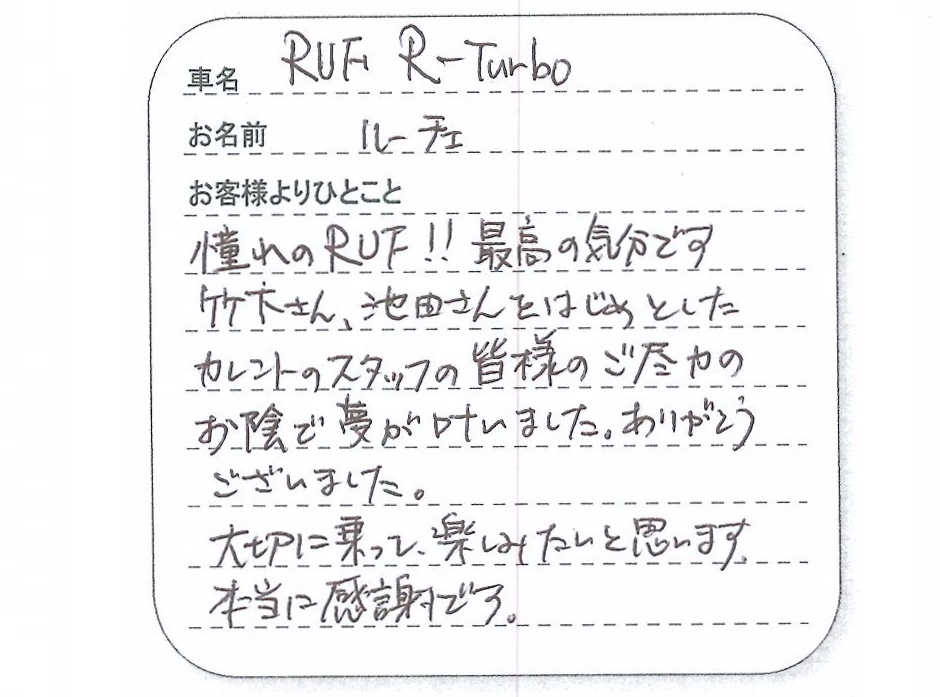 車名 RUF R-Turbo
お名前 ルーチェ
お客様よりひとこと
憧れのRUF!! 最高の気分です
竹下さん、池田さんをはじめとした
カレントのスタッフの皆様のご尽力の
お陰で夢が叶いました。ありがとう
ございました。
大切に乗って、楽しみたいと思います。
本当に感謝です。